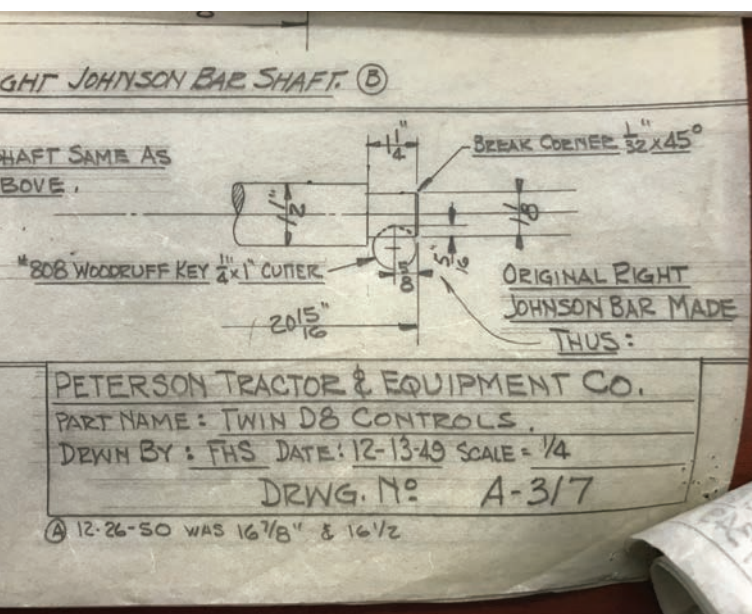 GHT JOHNSON BAR SHAFT. Ⓑ
HAFT SAME AS
BOVE.
1 1/4"
BREAK CORNER 1/32"x45°
1 1/2"
1 1/8
#808 WOODRUFF KEY 1/4"x1" CUTTER
5/8
5/16"
ORIGINAL RIGHT
JOHNSON BAR MADE
THUS:
20 15/16"
PETERSON TRACTOR & EQUIPMENT CO.
PART NAME: TWIN D8 CONTROLS.
DRWN BY: FHS DATE: 12-13-49 SCALE = 1/4
DRWG. Nº A-317
Ⓐ 12-26-50 WAS 16 7/8" & 16 1/2